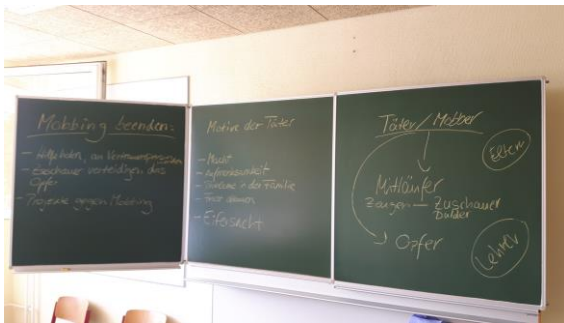 Mobbing beenden:
- Hilfe holen, an Vertrauenspersonen
- Zuschauer verteidigen das
Opfer
- Projekte gegen Mobbing
Motive der Täter
- Macht
- Aufmerksamkeit
- Probleme in der Familie
- Eifersucht
Täter / Mobber
Eltern
Mitläufer
Zeugen - Zuschauer
Dulder
Opfer
Lehrer